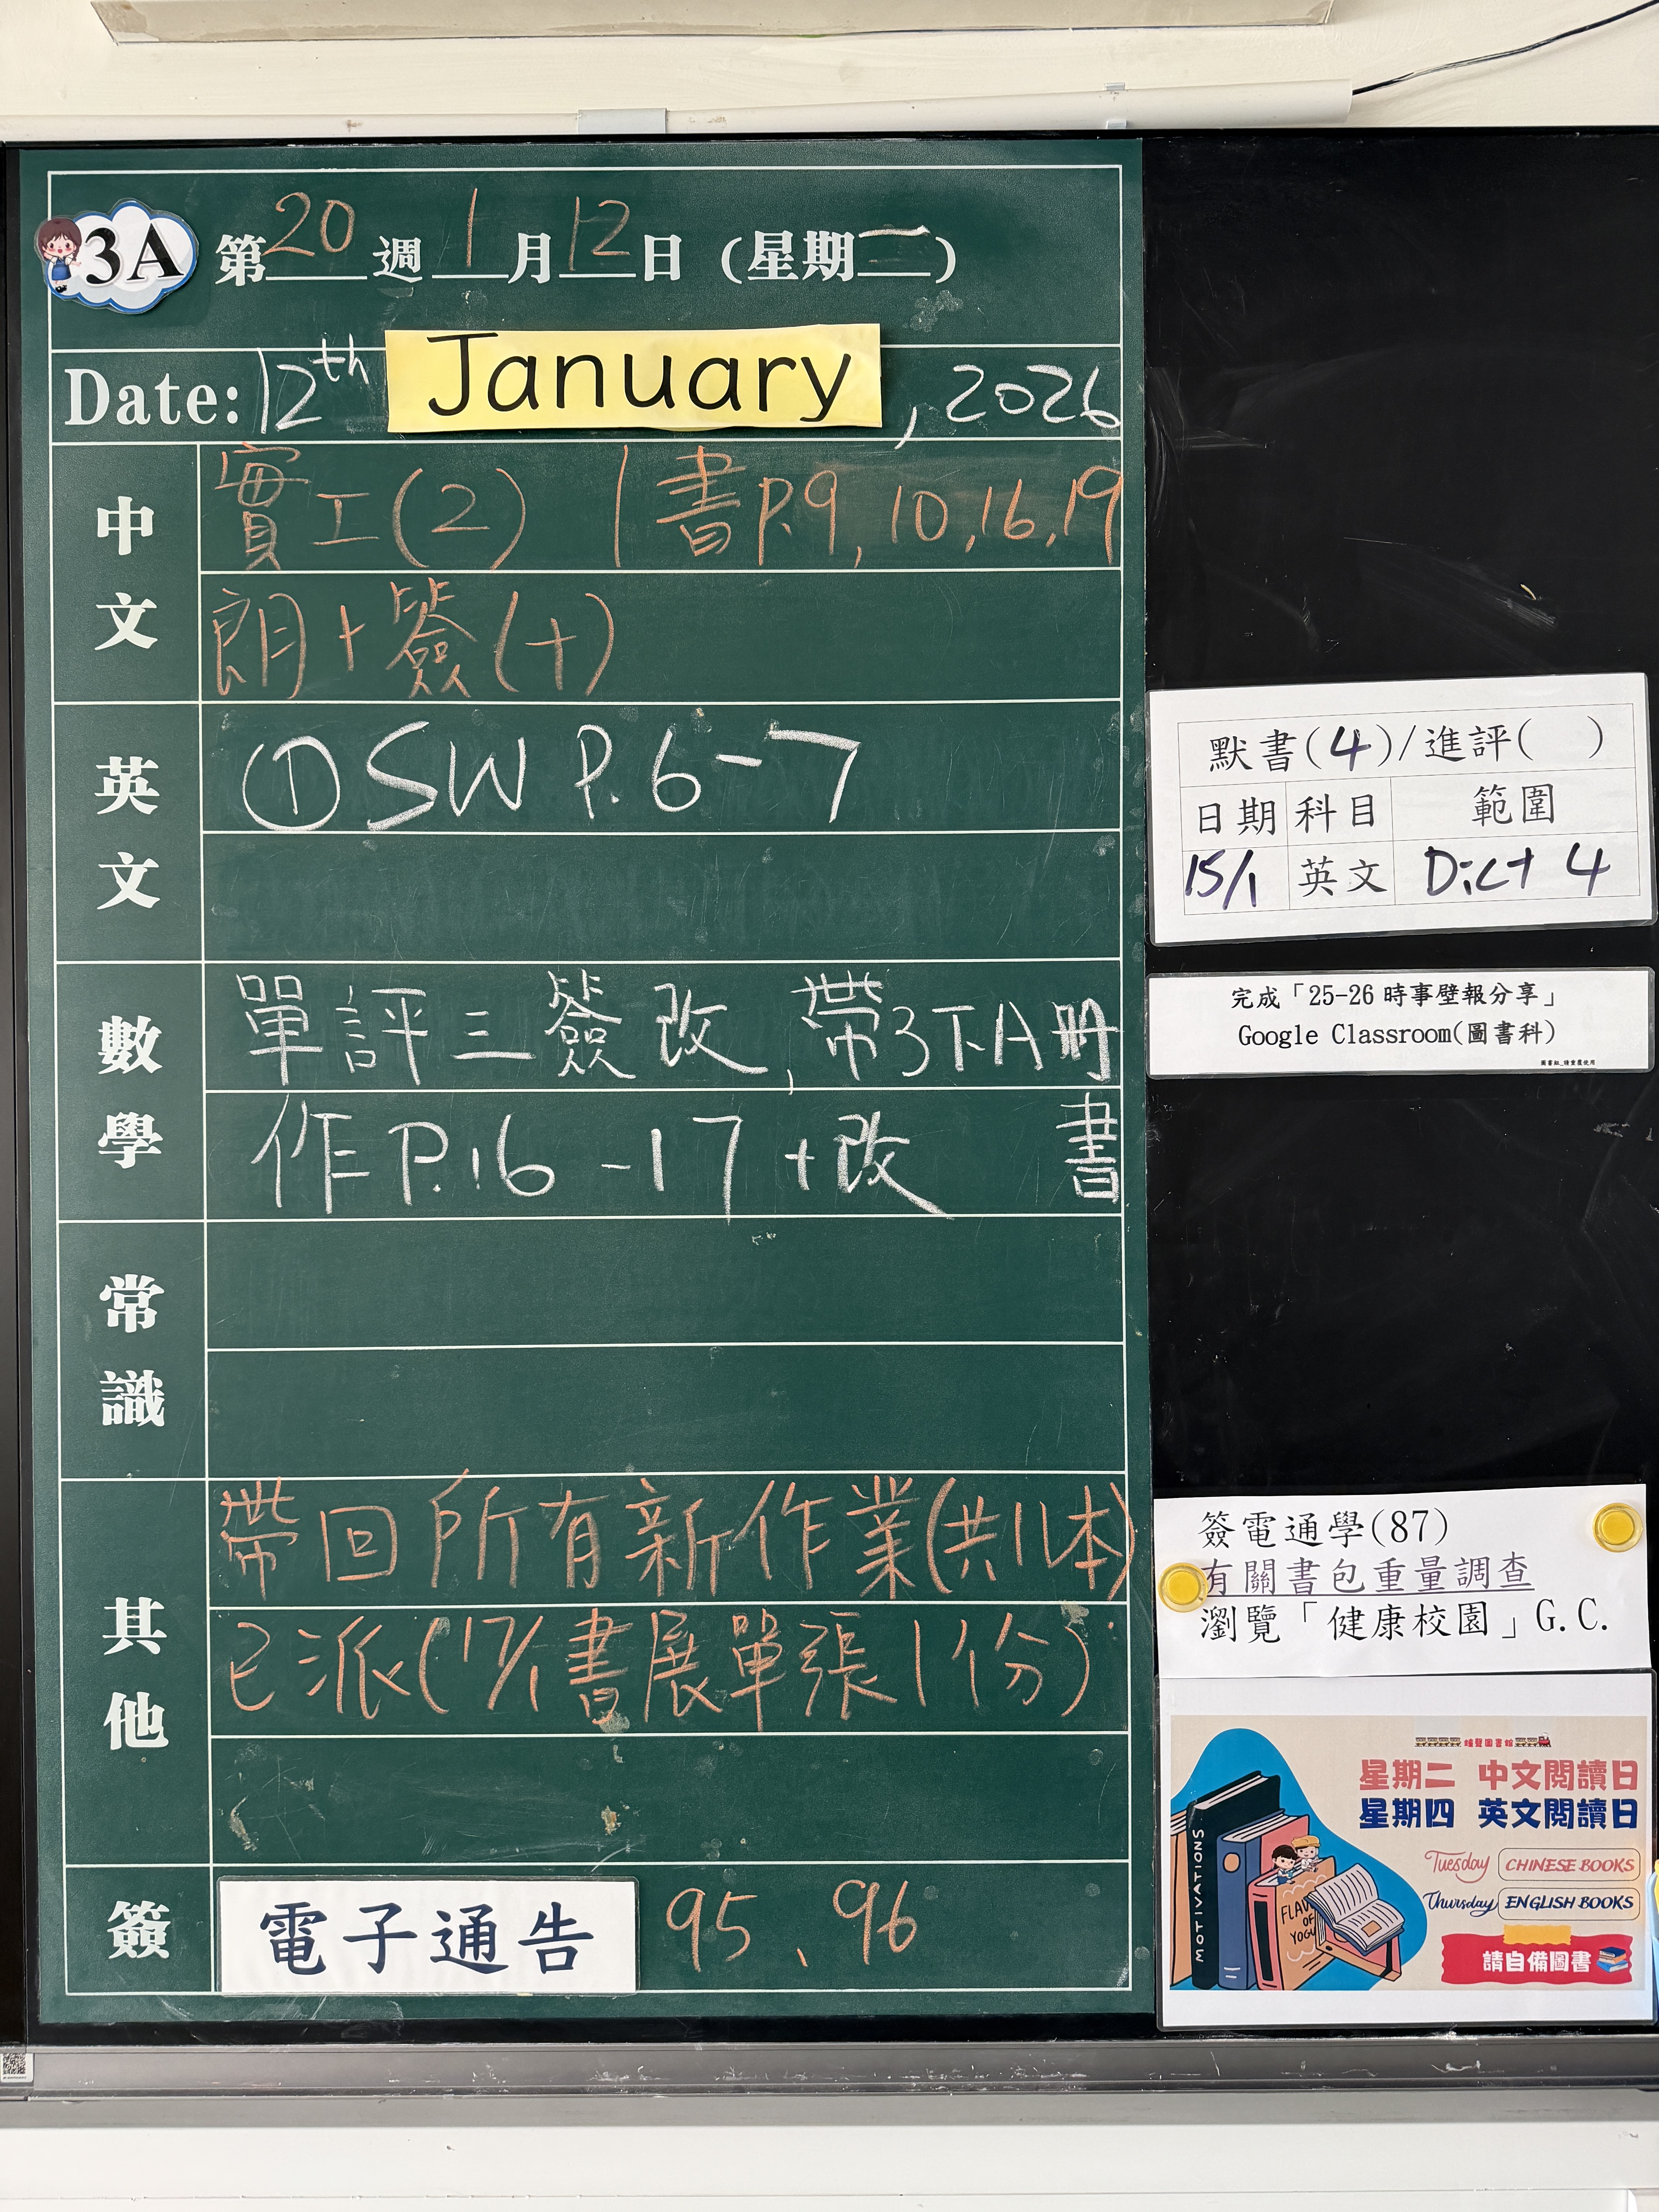 3A
第20週1月12日(星期一)
Date: 12th January, 2026
中文
實工(2) | 書P.9, 10, 16, 19
朗+簽(十)
英文
① SW P.6-7
數學
單評三簽改,帶3下A冊
作P.16-17+改 書
常識
其他
帶回所有新作業(共11本)
已派(17/1書展單張1份)
簽
電子通告 95、96
默書(4)/進評( )
日期 科目 範圍
15/1 英文 Dict 4
完成「25-26時事壁報分享」
Google Classroom(圖書科)
簽電通學(87)
有關書包重量調查
瀏覽「健康校園」G.C.
星期二 中文閱讀日
星期四 英文閱讀日
Tuesday CHINESE BOOKS
Thursday ENGLISH BOOKS
請自備圖書
MOTIVATIONS
OF